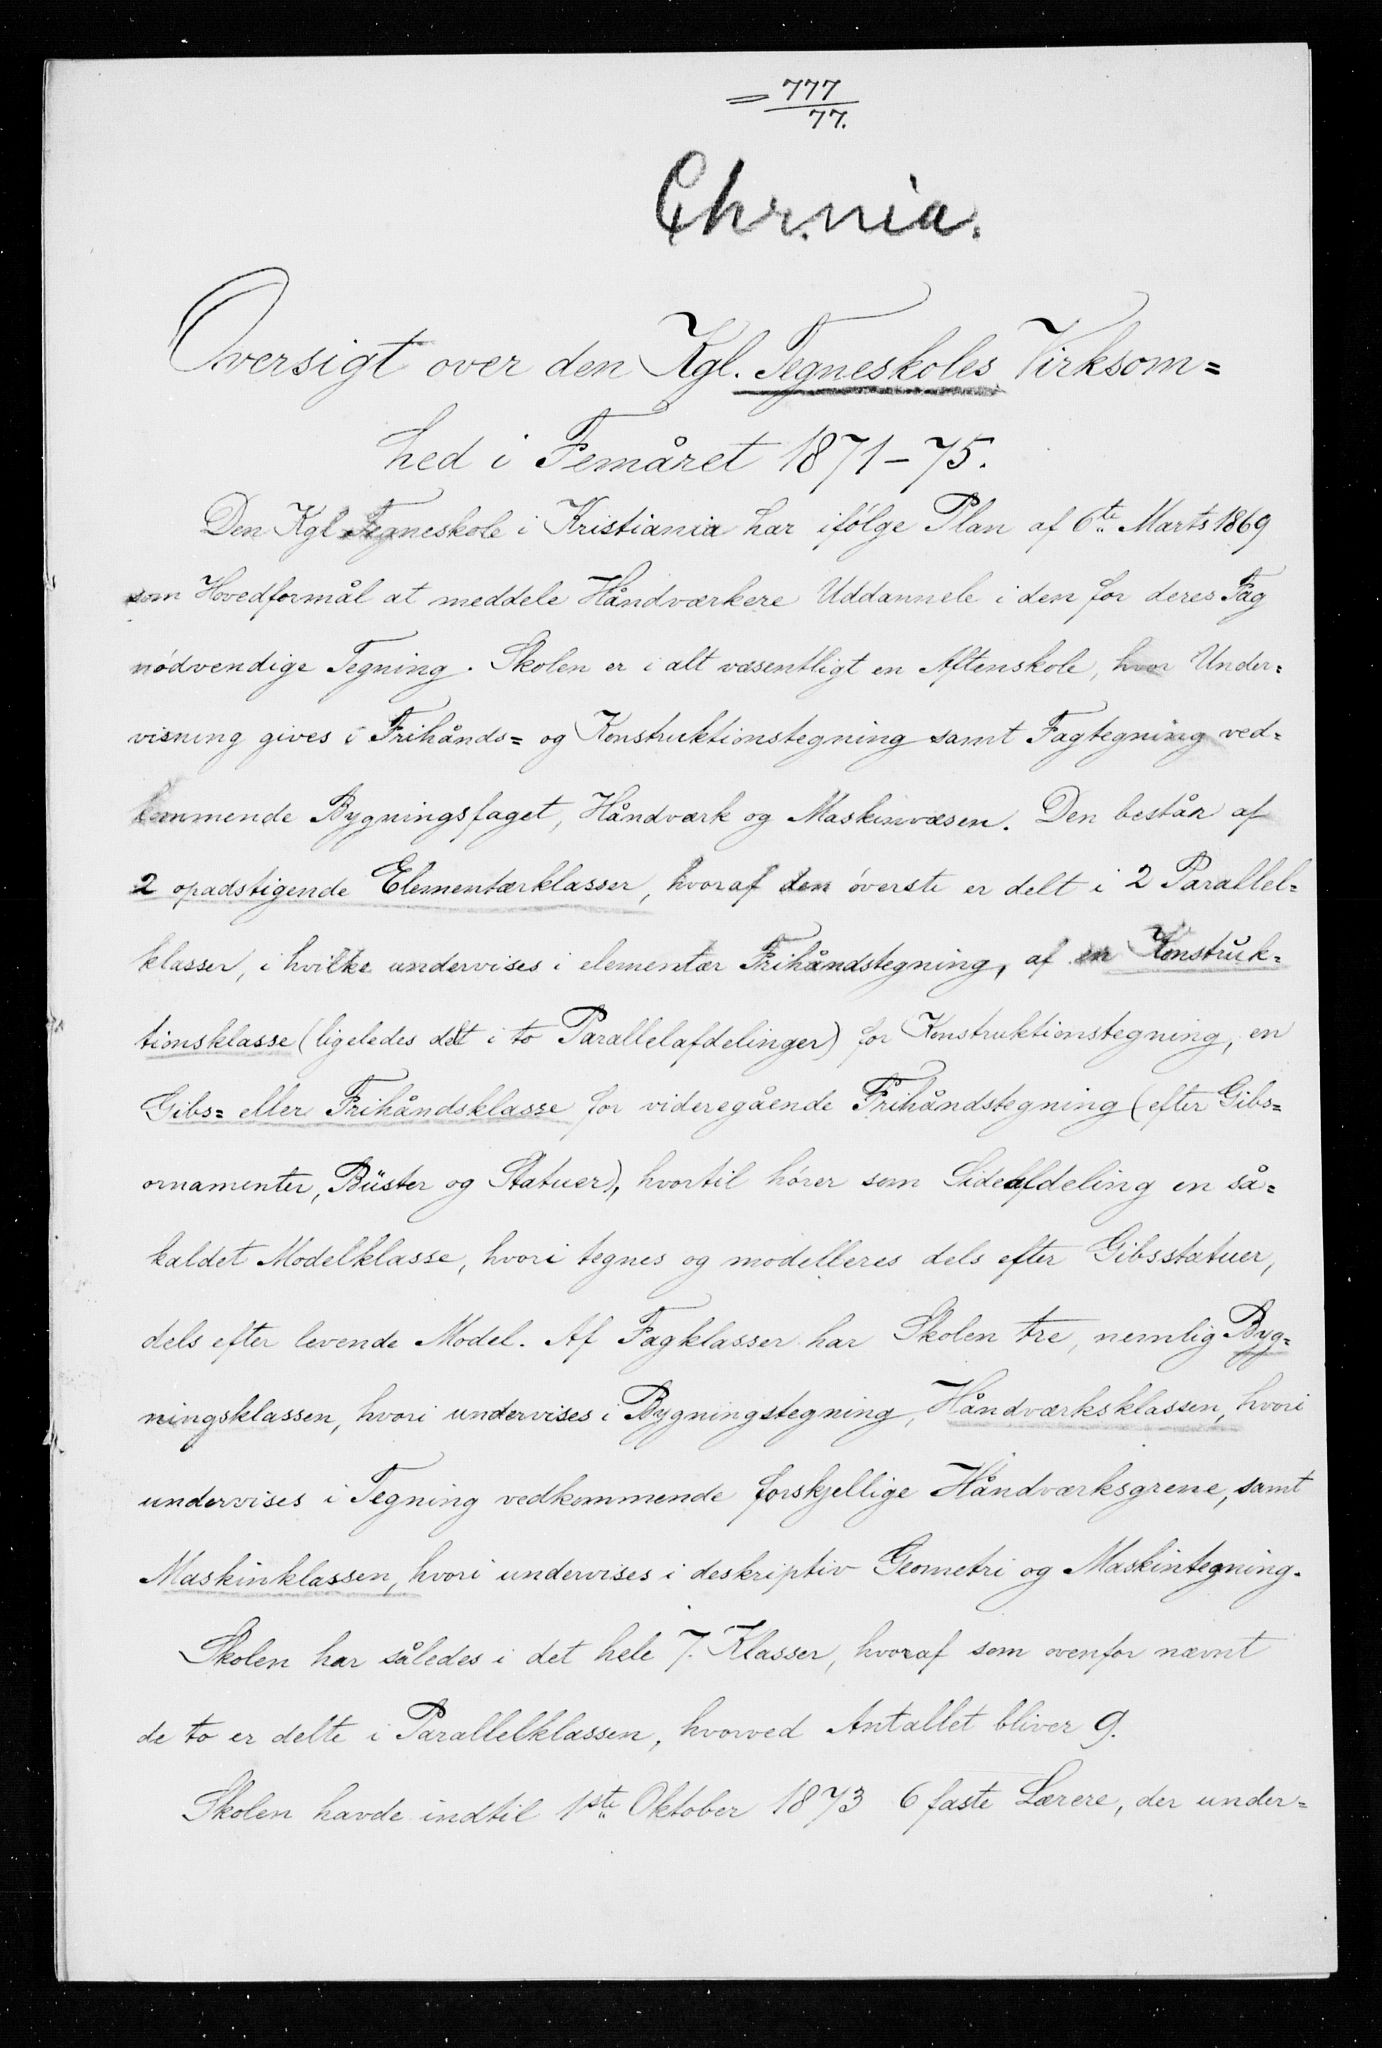 = 777
77.
Chr.nia.
Oversigt over den Kgl. Tegneskoles Virksom=
hed i Femåret 1871-75.
Den Kgl Tegneskole i Kristiania har ifölge Plan af 6te Marts 1869
som Hovedformål at meddele Håndværkere Uddannele i den for deres Fag
nödvendige Tegning. Skolen er i alt væsentligt en Aftenskole, hvor Under=
visning gives i Frihånds= og Konstruktionstegning samt Fagtegning ved=
kommende Bygningsfaget, Håndværk og Maskinvæsen. Den består af
2 opadstigende Elementærklasser, hvoraf den överste er delt i 2 Parallel=
klasser, i hvilke undervises i elementær Frihåndstegning, af en Konstruk=
tionsklasse (ligeledes delt i to Parallelafdelinger) for Konstruktionstegning, en
Gibs= eller Frihåndsklasse for videregående Frihåndstegning (efter Gibs=
ornamenter, Büster og Statuer), hvortil hörer som Sideafdeling en så=
kaldet Modelklasse, hvori tegnes og modelleres dels efter Gibsstatuer,
dels efter levende Model. Af Fagklasser har Skolen tre, nemlig Byg=
ningsklassen, hvori undervises i Bygningstegning, Håndværksklassen, hvori
undervises i Tegning vedkommende forskjellige Håndværksgrene, samt
Maskinklassen, hvori undervises i deskriptiv Geometri og Maskintegning.
Skolen har således i det hele 7. Klasser, hvoraf som ovenfor nævnt
de to er delte i Parallelklassen, hvorved Antallet bliver 9.
Skolen havde indtil 1ste Oktober 1873 6 faste Lærere, der under=